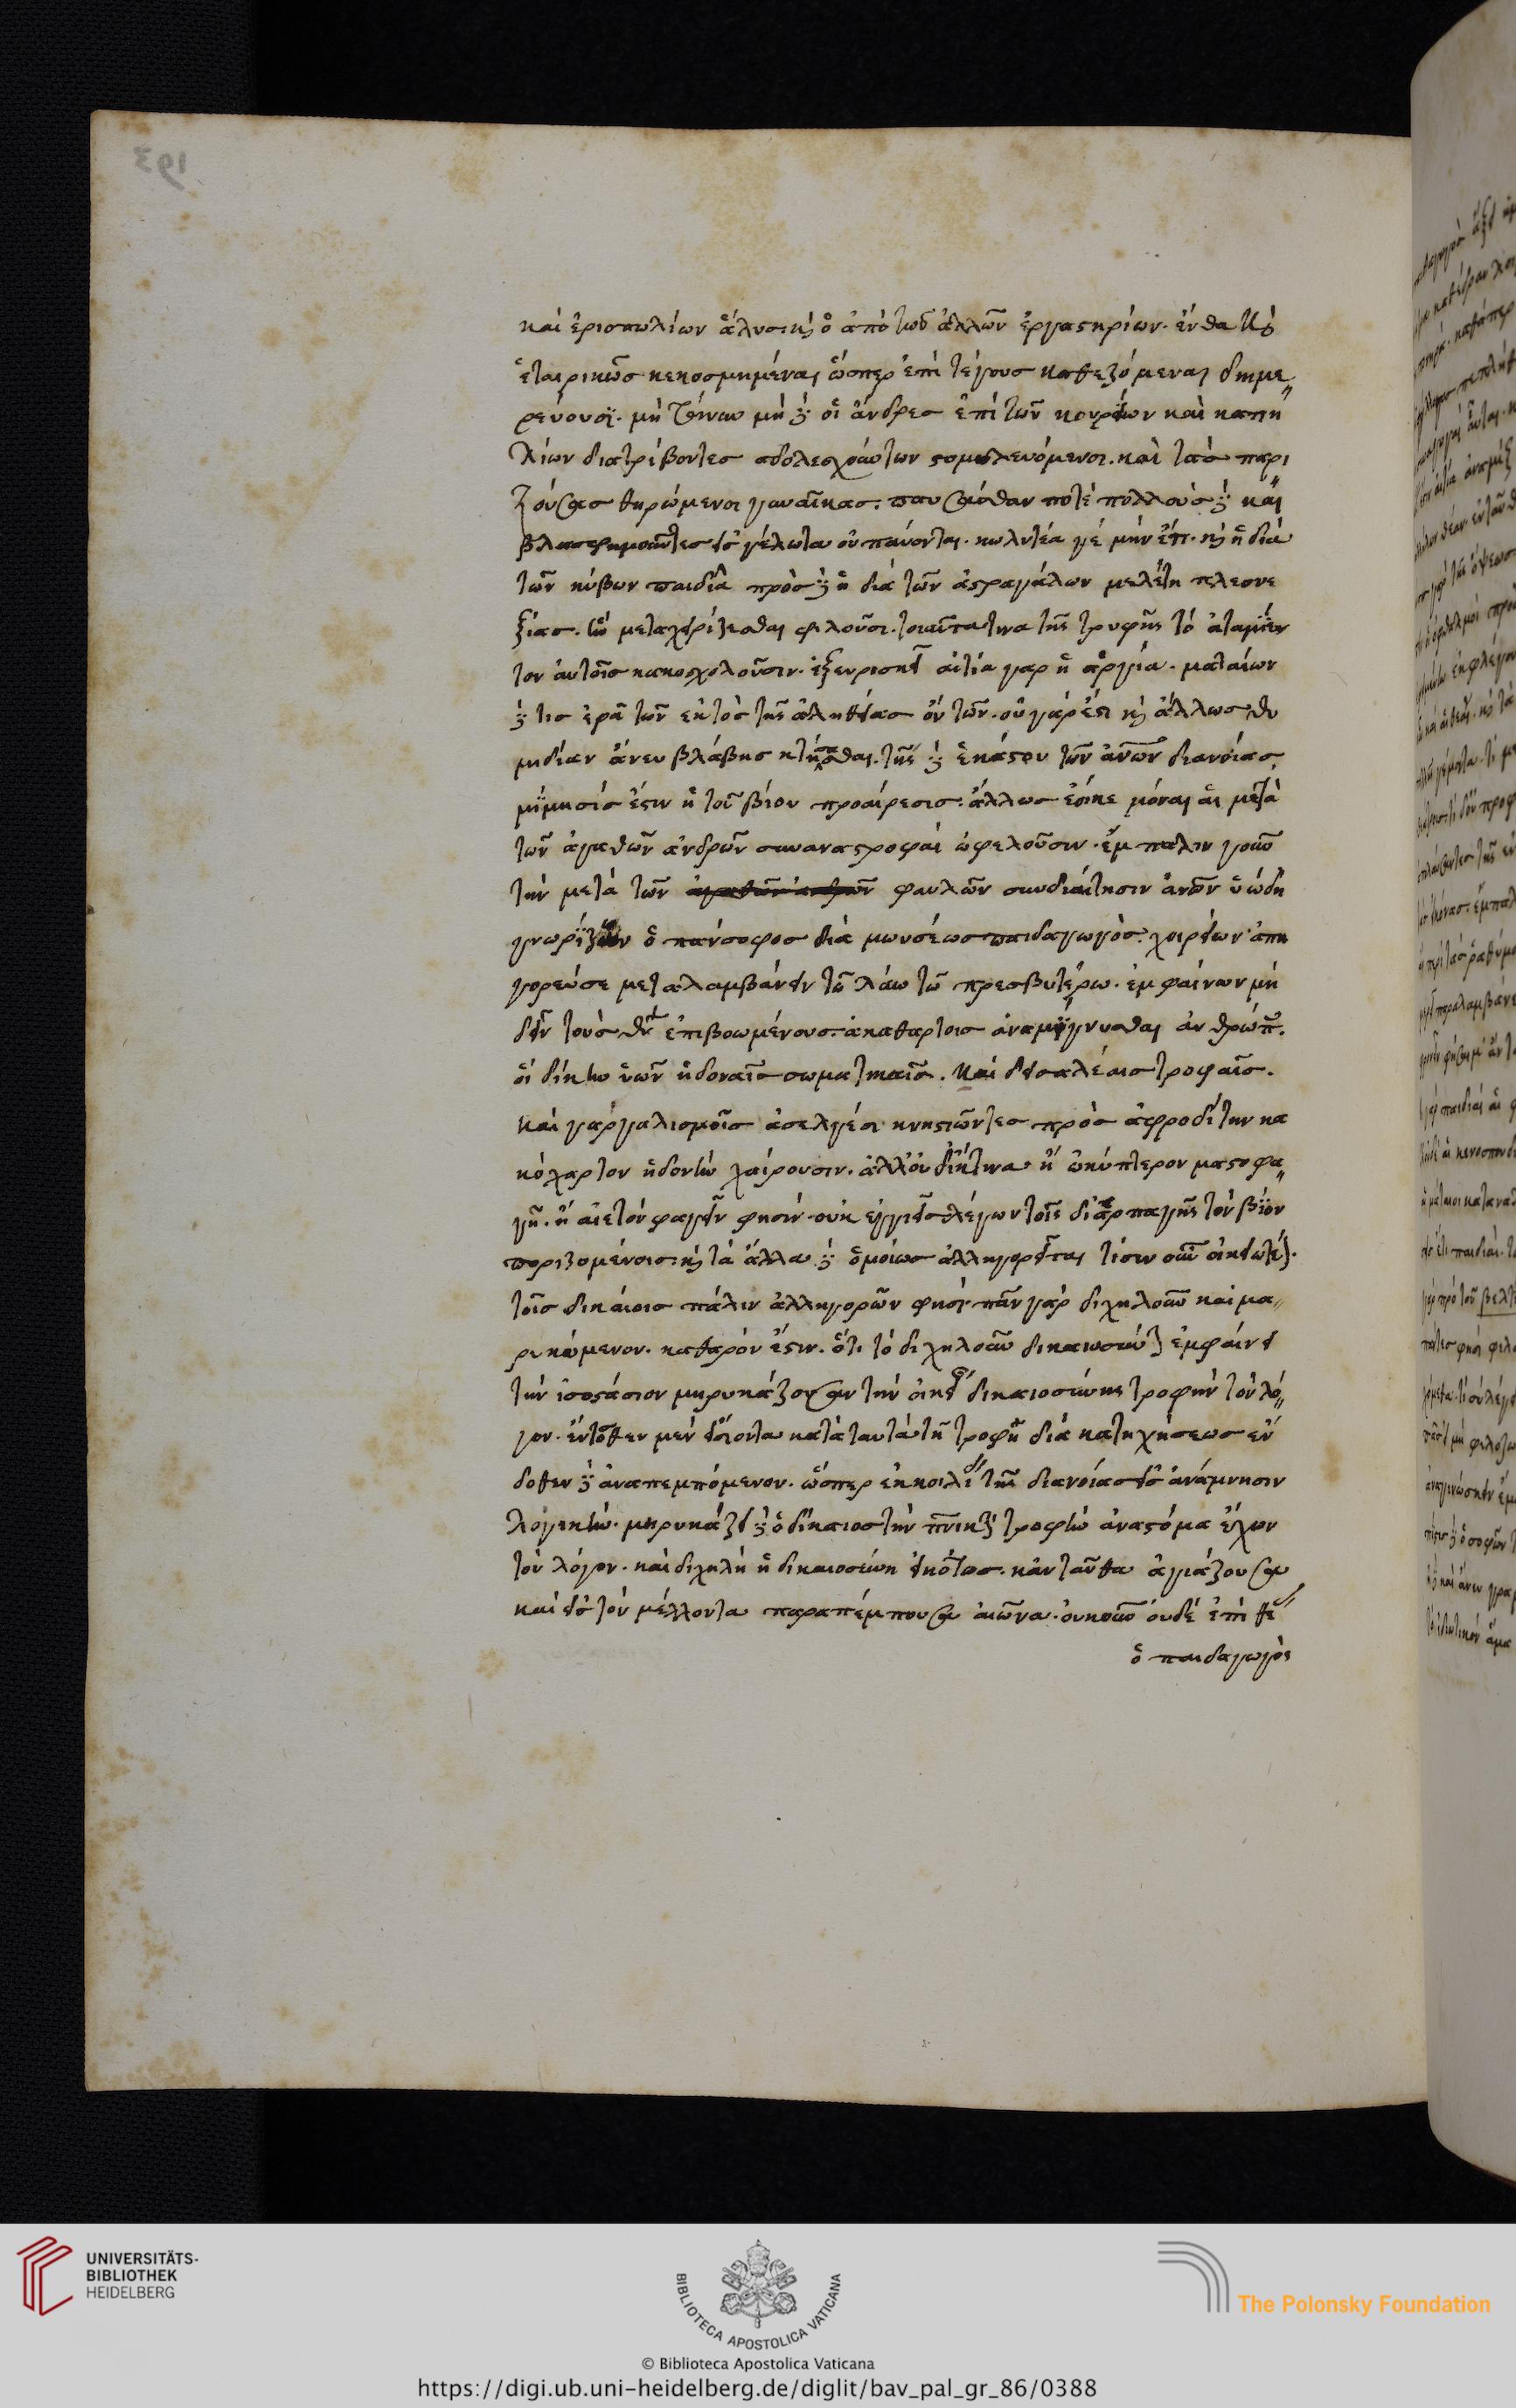 193
καὶ ἐριοπωλίων ἄλυσι καὶ ὁ ἀπὸ τῶν ἄλλων ἐργαστηρίων. ἔνθα καὶ
ἑταιρικῶς κεκοσμημέναι ὥσπερ ἐπὶ τέγους καθεζόμεναι διημε
ρεύουσι. μὴ τοίνυν μὴ δὲ οἱ ἄνδρες ἐπὶ τῶν κουρείων καὶ καπη
λίων διατρίβοντες ἀδολεσχούντων στομυλευόμενοι. καὶ τὰς παρι
ζούσας θηρώμενοι γυναῖκας. παυσάσθων ποτὲ πολλοὺς δὲ καὶ
βλασφημοῦντες εἰς γέλωτα οὐ παύονται. κωλυτέα γε μήν ἐστι. καὶ ἡ διὰ
τῶν κύβων παιδιὰ πρὸς δὲ ἡ διὰ τῶν ἀστραγάλων μελέτη πλεονε
ξίας. ἣν μεταχειρίζεσθαι φιλοῦσι. τοιαῦτα τινα τῆς τρυφῆς τὸ ἀταμίευ
τον αὐτοῖς κακοσχολοῦσιν. ἐξευρίσκει αἰτία γὰρ ἡ ἀργία. ματαίων
δέ τις ἐρᾷ τῶν ἐκτὸς τῆς ἀληθείας ὄντων. οὐ γάρ ἐστι καὶ ἄλλως θυ
μιδίαν ἄνευ βλάβης κτήσασθαι. τῆς δὲ ἑκάστου τῶν ἀνων διανοίας
μίμησίς ἐστιν ἡ τοῦ βίου προαίρεσις. ἄλλως ἔοικε μόναι αἱ μετὰ
τῶν ἀγαθῶν ἀνδρῶν συναναστροφαὶ ὠφελοῦσιν. ἔμπαλιν γοῦν
τὴν μετὰ τῶν ἀγαθῶν ἀνδρῶν φαυλῶν συνδιαίτησιν ἀνοῦν ὑώδη
γνωρίζων ὁ πάνσοφος διὰ μωυσέως παιδαγωγὸς. χοιρείων ἀπη
γορεύσε μεταλαμβάνειν τῷ λάῳ τῷ πρεσβυτέρῳ. ἐμφαίνων μὴ
δεῖν τοὺς θν ἐπιβοωμένους. ἀκαθάρτοις ἀναμίγνυσθαι ἀνθρώπ.
οἱ δίκην ὑῶν ἡδοναῖς σωματικαῖς. καὶ δεισαλέαις τροφαῖς.
καὶ γαργαλισμοῖς ἀσελγέσι κνηστιῶντες πρὸς ἀφροδίτην κα
κόχαρτον ἡδονὴν χαίρουσιν. ἀλλ' οὐδὲ ἰκτῖνα ἢ ὠκύπτερον μαστοφα
γῆ. ἢ αἰετὸν φαγεῖν φησίν. οὐκ ἐγγιεῖς λέγων τοῖς δι' ἁρπαγῆς τὸν βίον
ποριζομένοις. καὶ τὰ ἄλλα δὲ ὁμοίως ἀλληγορεῖται τίσιν οὖν οἰκειωτέ.
τοῖς δικαίοις πάλιν ἀλληγορῶν φησί. πᾶν γὰρ διχηλοῦν καὶ μα
ρυκώμενον. καθαρόν ἐστιν. ὅτι τὸ διχηλοῦν δικαιοσύνην ἐμφαίνει
τὴν ἰσοστάσιον μηρυκάζουσαν τὴν οἰκείαν δικαιοσύνης τροφὴν τὸν λό
γον. ἐντόθεν μὲν εἰσίοντα κατὰ ταυτὰ τῇ τροφῇ διὰ κατηχήσεως ἔν
δοθεν δὲ ἀναπεμπόμενον. ὥσπερ ἐκ κοιλί τῆς διανοίας εἰς ἀνάμνησιν
λογικὴν. μηρυκάζει δὲ ὁ δίκαιος τὴν πνικὴν τροφὴν ἀναστόμα ἔχων
τὸν λόγον. καὶ διχηλῆ ἡ δικαιοσύνη εἰκότως. κἀνταῦθα ἁγιάζουσα
καὶ εἰς τὸν μέλλοντα παραπέμπουσα αἰῶνα. οὐκοῦν οὐδὲ ἐπὶ θέ
ὁ παιδαγωγὸς
UNIVERSITÄTS-
BIBLIOTHEK
HEIDELBERG
BIBLIOTECA APOSTOLICA VATICANA
The Polonsky Foundation
© Biblioteca Apostolica Vaticana
https://digi.ub.uni-heidelberg.de/diglit/bav_pal_gr_86/0388